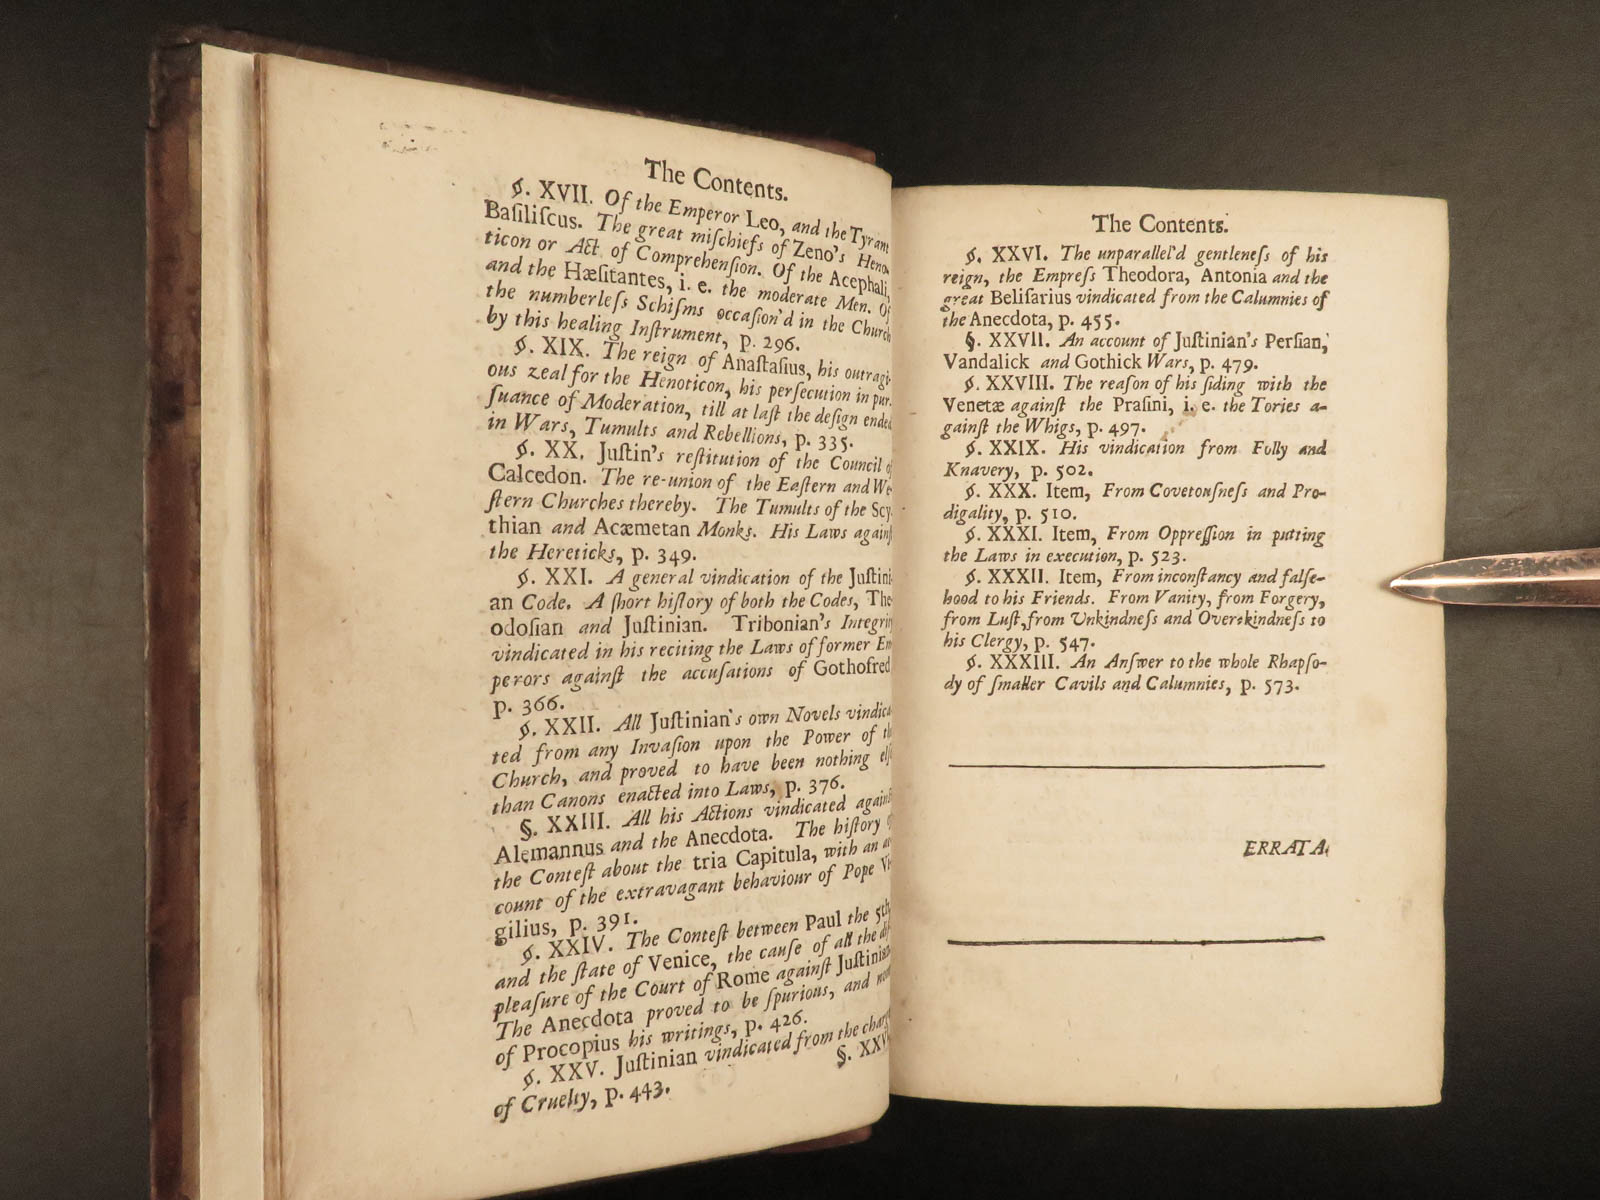 The Contents.
§. XVII. Of the Emperor Leo, and the Tyrant
Baſiliſcus. The great miſchiefs of Zeno's Heno-
ticon or Act of Comprehenſion. Of the Acephali,
and the Hæſitantes, i. e. the moderate Men. Of
the numberleſs Schiſms occaſion'd in the Church
by this healing Inſtrument, p. 296.
§. XIX. The reign of Anaſtaſius, his outragi-
ous zeal for the Henoticon, his perſecution in pur-
ſuance of Moderation, till at laſt the deſign ended
in Wars, Tumults and Rebellions, p. 335.
§. XX. Juſtin's reſtitution of the Council of
Calcedon. The re-union of the Eaſtern and We-
ſtern Churches thereby. The Tumults of the Scy-
thian and Acæmetan Monks. His Laws againſt
the Hereticks, p. 349.
§. XXI. A general vindication of the Juſtini-
an Code. A ſhort hiſtory of both the Codes, The-
odoſian and Juſtinian. Tribonian's Integrity
vindicated in his reciting the Laws of former Em-
perors againſt the accuſations of Gothofred,
p. 366.
§. XXII. All Juſtinian's own Novels vindica-
ted from any Invaſion upon the Power of the
Church, and proved to have been nothing elſe
than Canons enacted into Laws, p. 376.
§. XXIII. All his Actions vindicated againſt
Alemannus and the Anecdota. The hiſtory of
the Conteſt about the tria Capitula, with an ac-
count of the extravagant behaviour of Pope Vi-
gilius, p. 391.
§. XXIV. The Conteſt between Paul the 5th
and the ſtate of Venice, the cauſe of all the diſ-
pleaſure of the Court of Rome againſt Juſtinian.
The Anecdota proved to be ſpurious, and none
of Procopius his writings, p. 426.
§. XXV. Juſtinian vindicated from the charge
of Cruelty, p. 443.
§. XXVI.
The Contents.
§. XXVI. The unparallel'd gentleneſs of his
reign, the Empreſs Theodora, Antonia and the
great Beliſarius vindicated from the Calumnies of
the Anecdota, p. 455.
§. XXVII. An account of Juſtinian's Perſian,
Vandalick and Gothick Wars, p. 479.
§. XXVIII. The reaſon of his ſiding with the
Venetæ againſt the Praſini, i. e. the Tories a-
gainſt the Whigs, p. 497.
§. XXIX. His vindication from Folly and
Knavery, p. 502.
§. XXX. Item, From Covetouſneſs and Pro-
digality, p. 510.
§. XXXI. Item, From Oppreſſion in putting
the Laws in execution, p. 523.
§. XXXII. Item, From inconſtancy and falſe-
hood to his Friends. From Vanity, from Forgery,
from Luſt, from Unkindneſs and Over-kindneſs to
his Clergy, p. 547.
§. XXXIII. An Anſwer to the whole Rhapſo-
dy of ſmaller Cavils and Calumnies, p. 573.
ERRATA.